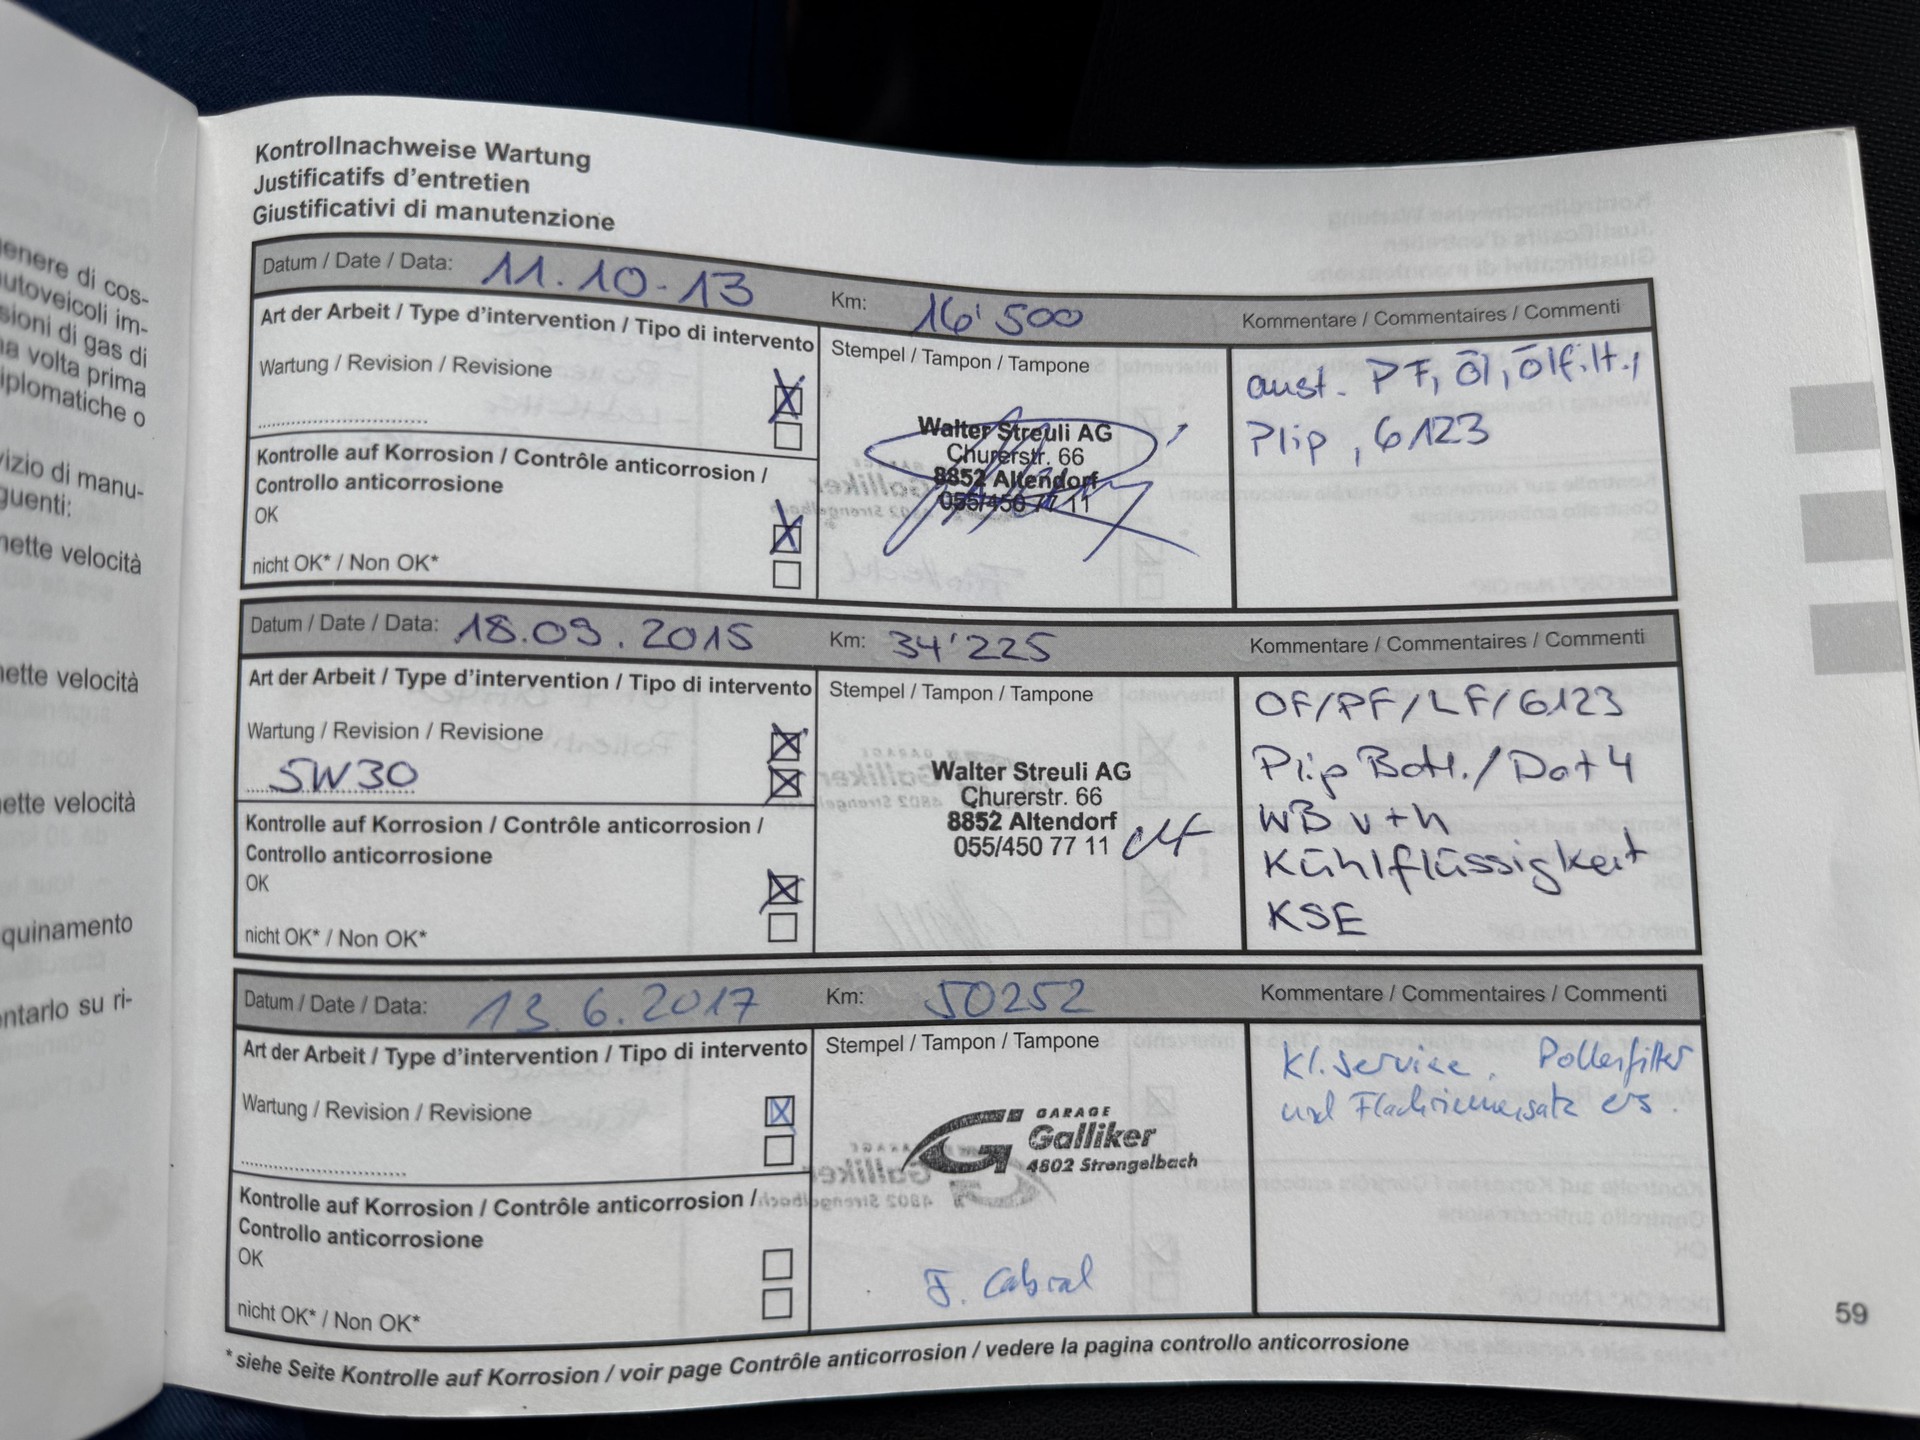 enere di cos-
utoveicoli im-
sioni di gas di
a volta prima
iplomatiche o
vizio di manu-
guenti:
nette velocità
nette velocità
ette velocità
quinamento
ntarlo su ri-
Kontrollnachweise Wartung
Justificatifs d'entretien
Giustificativi di manutenzione
Datum / Date / Data: 11.10-13 Km: 16'500 Kommentare / Commentaires / Commenti
Art der Arbeit / Type d'intervention / Tipo di intervento
Wartung / Revision / Revisione
Kontrolle auf Korrosion / Contrôle anticorrosion /
Controllo anticorrosione
OK
nicht OK* / Non OK*
Stempel / Tampon / Tampone
Walter Streuli AG
Churerstr. 66
8852 Altendorf
055/450 77 11
aust. PF, Öl, Ölfilt.,
Plip, 6123
Datum / Date / Data: 18.09.2015 Km: 34'225 Kommentare / Commentaires / Commenti
Art der Arbeit / Type d'intervention / Tipo di intervento
Wartung / Revision / Revisione
5W30
Kontrolle auf Korrosion / Contrôle anticorrosion /
Controllo anticorrosione
OK
nicht OK* / Non OK*
Stempel / Tampon / Tampone
Walter Streuli AG
Churerstr. 66
8852 Altendorf
055/450 77 11
OF/PF/LF/6123
Plip Batt./Dot4
WB v+h
Kühlflüssigkeit
KSE
Datum / Date / Data: 13.6.2017 Km: 50252 Kommentare / Commentaires / Commenti
Art der Arbeit / Type d'intervention / Tipo di intervento
Wartung / Revision / Revisione
Kontrolle auf Korrosion / Contrôle anticorrosion /
Controllo anticorrosione
OK
nicht OK* / Non OK*
Stempel / Tampon / Tampone
GARAGE
Galliker
4802 Strengelbach
F. Cabral
Kl. Service, Pollenfilter
und Flachriemensatz ers.
* siehe Seite Kontrolle auf Korrosion / voir page Contrôle anticorrosion / vedere la pagina controllo anticorrosione
59